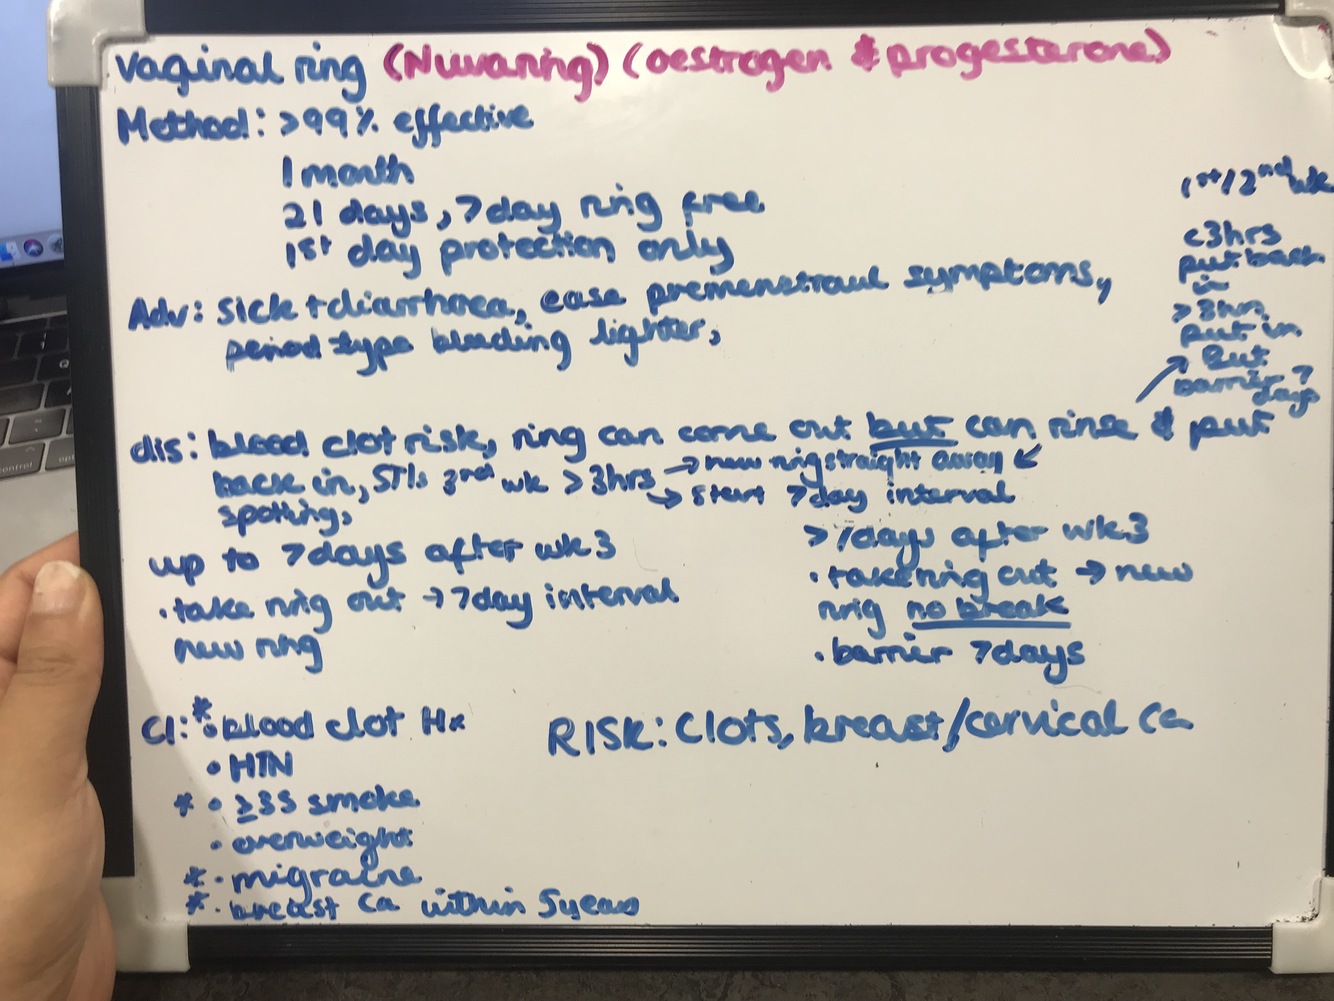 Vaginal ring (Nuvaring) (oestrogen & progesterone)
Method: >99% effective
1 month
21 days, 7 day ring free
1st day protection only
Adv: sick + diarrhoea, ease premenstraul symptoms,
period type bleeding lighter,
1st/2nd wk
<3hrs
put back
in
>3hrs
put in
but
barrier 7
days
dis: blood clot risk, ring can come out but can rinse & put
back in, STIs 3rd wk >3hrs → new ring straight away
→ start 7 day interval
spotting,
up to 7 days after wk 3
• take ring out → 7 day interval
new ring
>7 days after wk3
• take ring out → new
ring no break
• barrier 7 days
CI: * • blood clot Hx
• HTN
* • ≥35 smoke
• overweight
* • migraine
* • breast Ca within 5 years
RISK: Clots, breast/cervical Ca
control